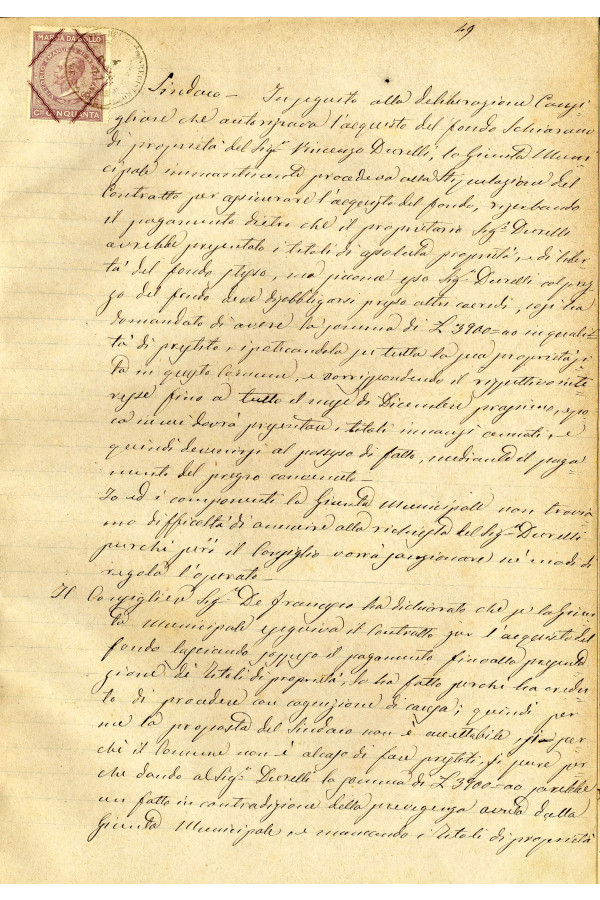 49
MARCA DA BOLLO
Cmi CINQUANTA
Sindaco – In seguito alla deliberazione Consi-
gliare che autorizzava l'acquisto del fondo Schiarano
di proprietà del Sigr. Vincenzo Durelli, la Giunta Muni-
cipale immantinente procedeva alla stipulazione del
Contratto per assicurare l'acquisto del fondo, riserbando
il pagamento dietro che il proprietario Sigr. Durelli
avrebbe presentato i titoli di assoluta proprietà, e di liber-
tà del fondo stesso, ma siccome esso Sigr. Durelli col prez-
zo del fondo deve disobbligarsi presso altri coeredi, così ha
domandato di avere la somma di £ 3900=00 in quali-
tà di prestito, ipotecandola su tutta la sua proprietà si-
ta in questo Comune, e corrispondendo il rispettivo inte-
resse fino a tutto il mese di Dicembre prossimo, epo-
ca in cui dovrà presentare i titoli innanzi cennati, e
quindi devenirsi al possesso di fatto, mediante il paga-
mento del prezzo convenuto –
Io ed i componenti la Giunta Municipale non trovia-
mo difficoltà di annuire alla richiesta del Sigr. Durelli
purchè però il Consiglio vorrà sanzionare ne' modi di
regola l'operato –
Il Consigliere Sigr. De Francesco ha dichiarato che se la Giun-
ta Municipale eseguiva il Contratto per l'acquisto del
fondo lasciando sospeso il pagamento fino alla presenta-
zione de' titoli di proprietà, lo ha fatto perchè ha credu-
to di procedere con cognizione di causa; quindi per
me la proposta del Sindaco non è accettabile, sì per-
chè il Comune non è al caso di fare prestiti, sì pure per-
che dando al Sigr. Durelli la somma di £ 3900=00 sarebbe
un fatto in contradizione della previgenza avuta dalla
Giunta Municipale, e mancando i titoli di proprietà